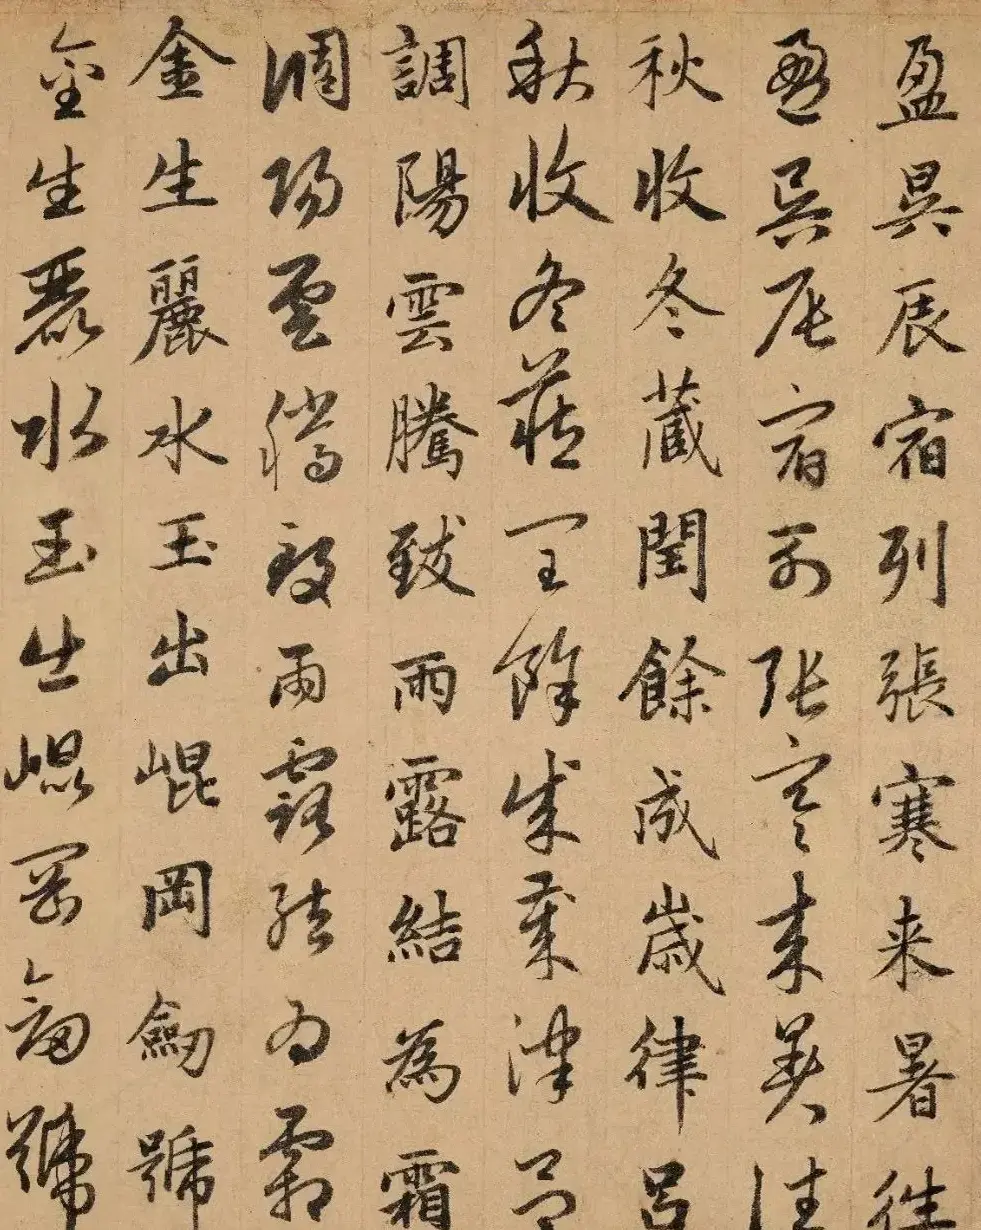 盈昃辰宿列張寒来暑往
盈昃辰宿列張寒来暑往
秋收冬蔵閏餘成歳律吕
秋收冬蔵閏餘成歳律吕
調陽雲騰致雨露結為霜
調陽雲騰致雨露結為霜
金生麗水玉出崐岡劒號
金生麗水玉出崐岡劒號